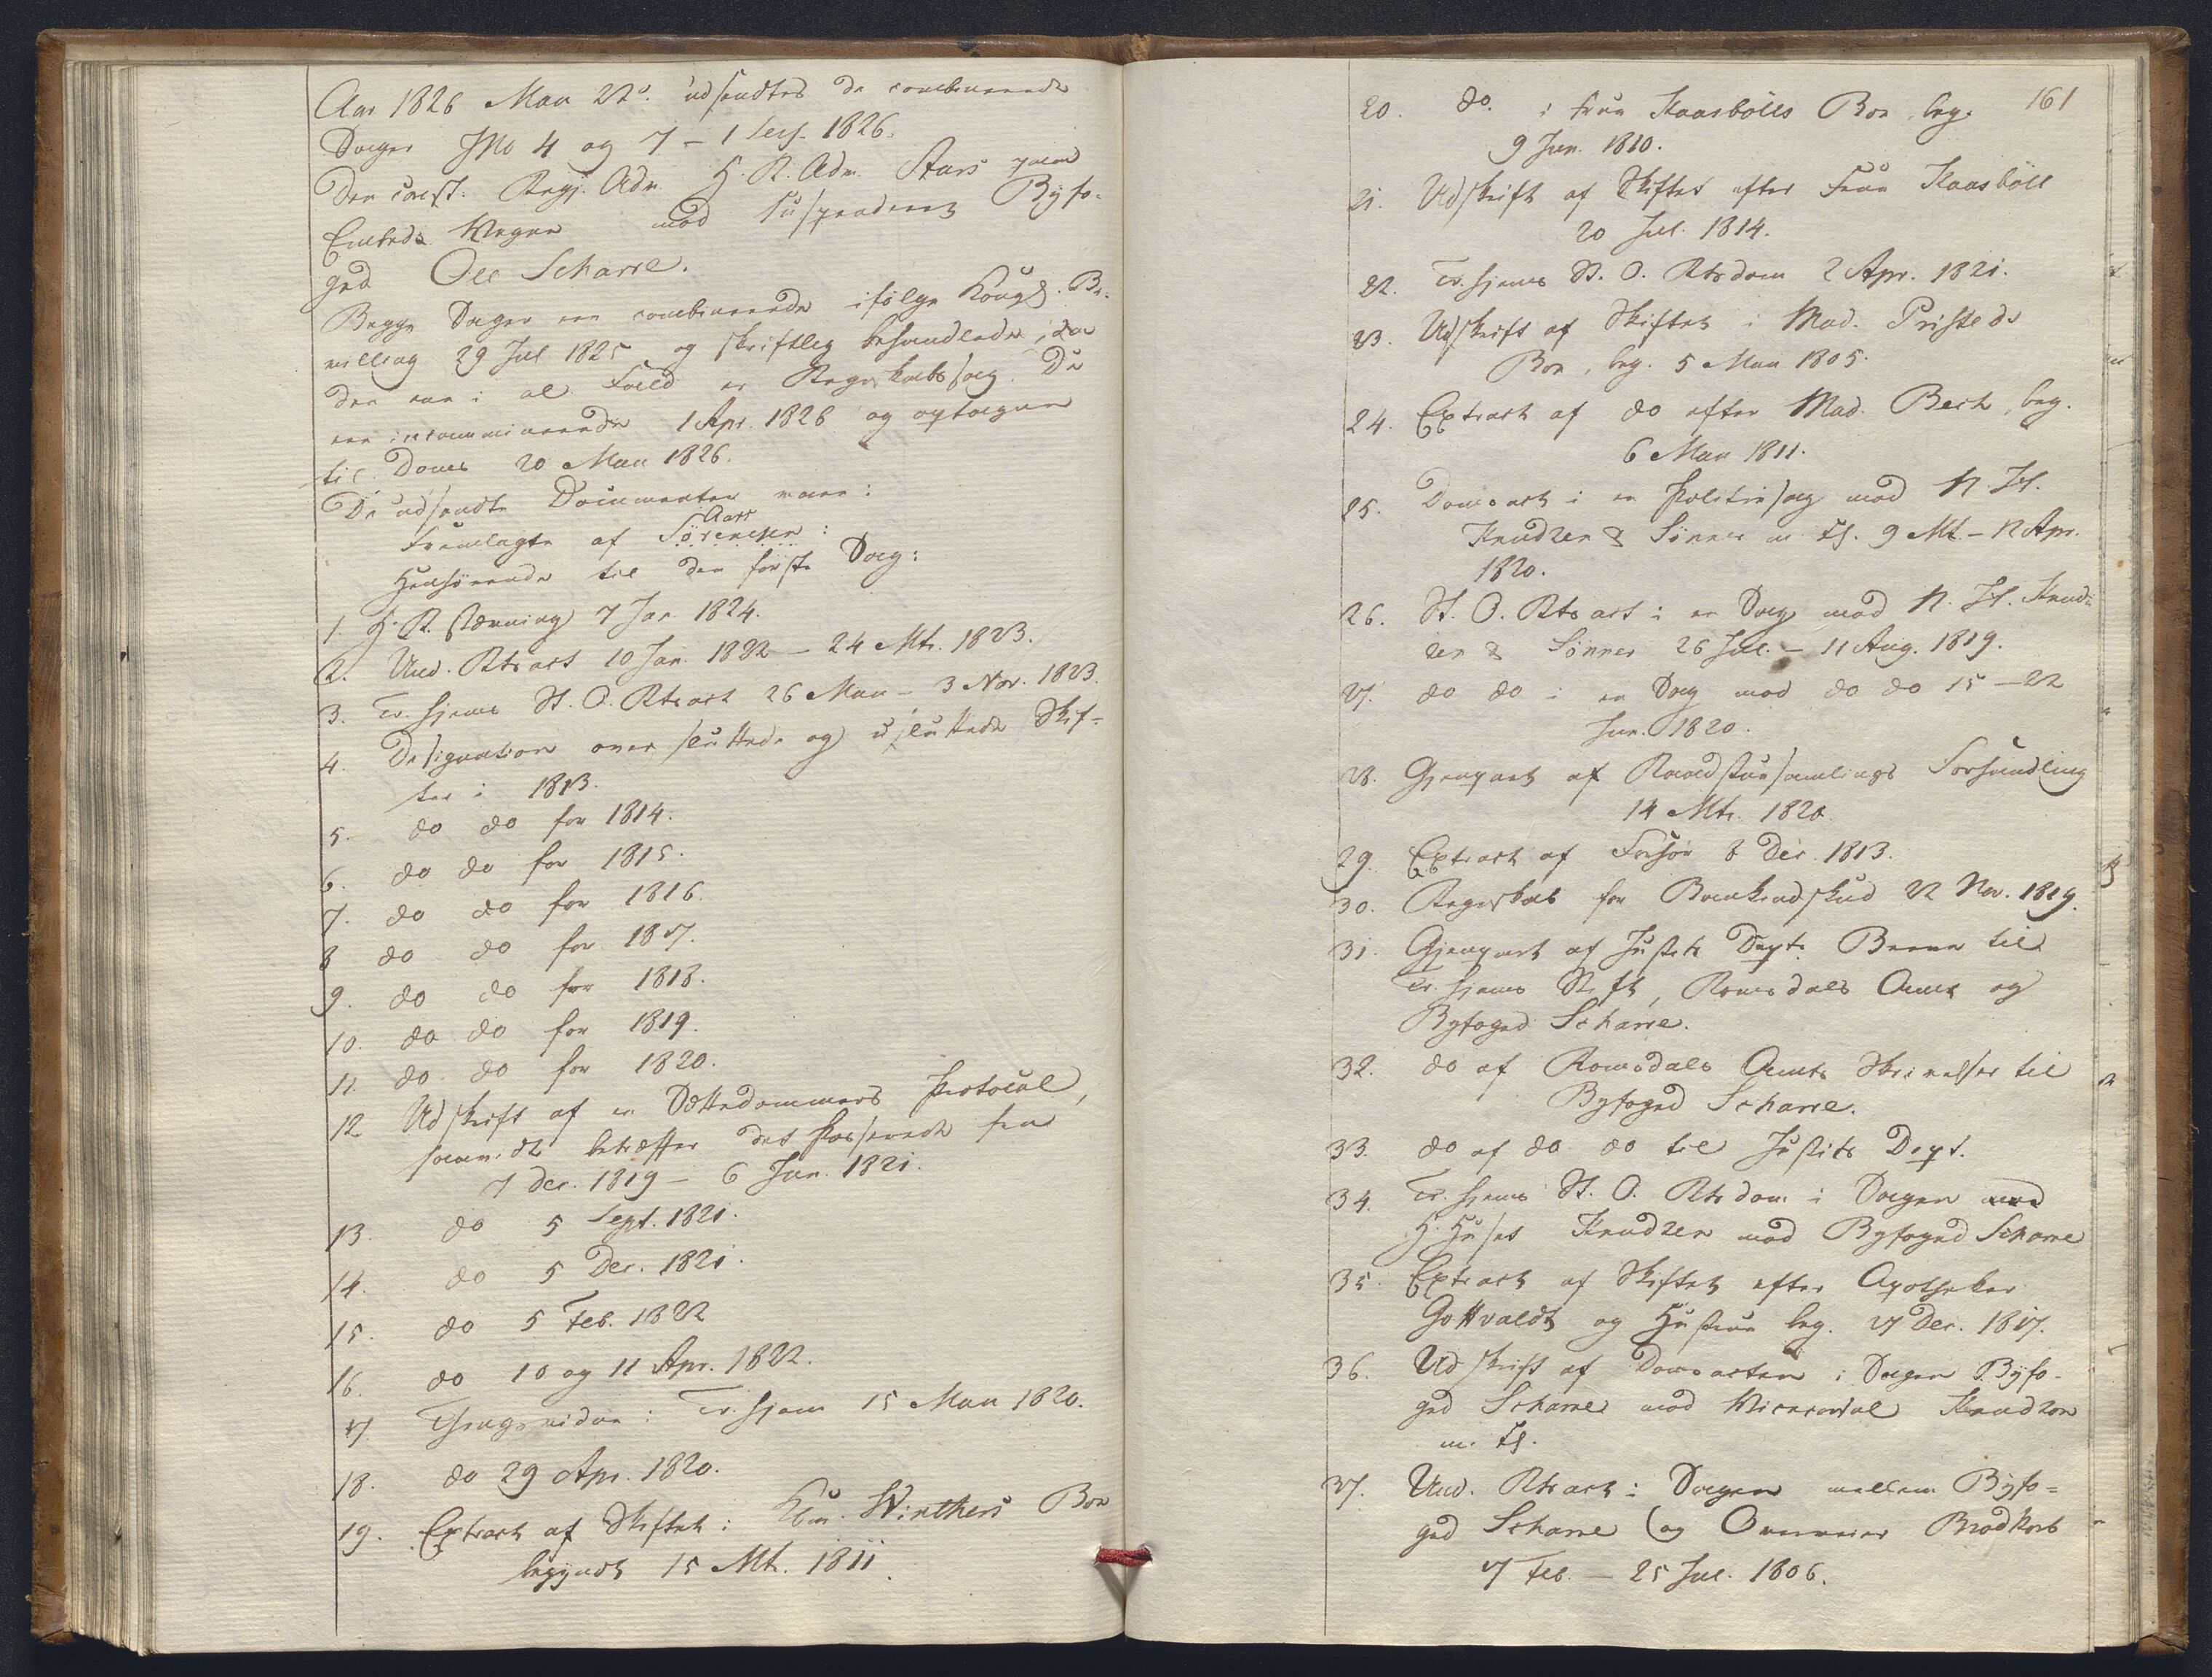 Aar 1826 Mau 22d. udsendtes de combinerede
Sager No 4 og 7 - 1 Sess. 1826.
Den const. Regj. Adv. H. R. Adv. Aars paa
Embeds Vegne mod suspenderet Byfo-
ged Ole Scharre.
Begge Sager ere combinerede ifølge Kongl. Be-
villing 29 Jul 1825 og skriftlig behandlede, da
den ene i al Fald er Regnskabssag. De
ere incamminerede 1 Apr. 1826 og optagne
til Doms 20 Mau 1826.
De udsendte Documenter vare:
Aars
Fremlagte af Sörensen:
Henhörende til den første Sag:
1. H. R. stævning 7 Jan. 1824.
2. Und. Rtsact 10 Jan. 1822 - 24 Mts. 1823.
3. Tr.hjems St. O. Rtsact 26 Mau - 3 Nov. 1823.
4. Designation over sluttede og usluttede Skif-
ter i 1813.
5. do do for 1814.
6. do do for 1815.
7. do do for 1816.
8 do do for 1817.
9. do do for 1818.
10. do do for 1819.
11. do do for 1820.
12 Udskrift af en Sættedommers Protocol,
saavidt betræffer det Passerede fra
7 Dec. 1819 - 6 Jan. 1821.
13. do 5 Sept. 1821.
14. do 5 Dec. 1821.
15. do 5 Feb. 1822
16. do 10 og 11 Apr. 1822.
17. Thingsvidne i Tr.hjem 15 Mau 1820.
18. do 29 Apr. 1820.
19. Extract af Skiftet i Kbm. Winthers Boe
begyndt 15 Mt. 1811.
161
20. do. i Frue Kaasbölls Boe, beg.
9 Jun. 1810.
21. Udskrift af Skiftet efter Frue Kaasböll
20 Jul. 1814.
22. Tr.hjems St. O. Rtsdom 2 Apr. 1821.
23. Udskrift af Skiftet i Mad. Pristeds
Boe, beg. 5 Mau 1805.
24. Extract af do efter Mad. Bech, beg.
6 Mau 1811.
25. Domsact i en Politiesag mod N. H.
Knudzen & Sönner m. fl. 9 Mt. - 12 Apr.
1820.
26. St. O. Rtsact i en Sag mod N. H. Knud-
zen & Sönner 26 Jul. - 11 Aug. 1819.
27. do do i en Sag mod do do 15 - 22
Jun. 1820.
28. Gjenpart af Raadstuesamlings Forhandling
14 Mts. 1820.
29. Extract af Forhör 8 Dec. 1813.
30. Regnskab for Bankindskud 22 Nov. 1819.
31. Gjenpart af Justits Dept. Breve til
Tr.hjems Stift, Romsdals Amt og
Byfoged Scharre.
32. do af Romsdals Amts Skrivelser til
Byfoged Scharre.
33. do af do do til Justits Dept.
34. Tr.hjems St. O. Rtsdom i Sagen mod
H. Huset Knudzen mod Byfoged Scharre
35. Extract af Skiftet efter Apotheker
Gottvaldt og Hustrue beg. 27 Dec. 1817.
36. Udskrift af Domsacten i Sagen Byfo-
ged Scharre mod Viceconsul Knudzon
m. fl.
37. Und. Rtsact i Sagen mellem Byfo-
ged Scharre og Overveier Brodkorb
27 Feb. - 25 Jul. 1806.